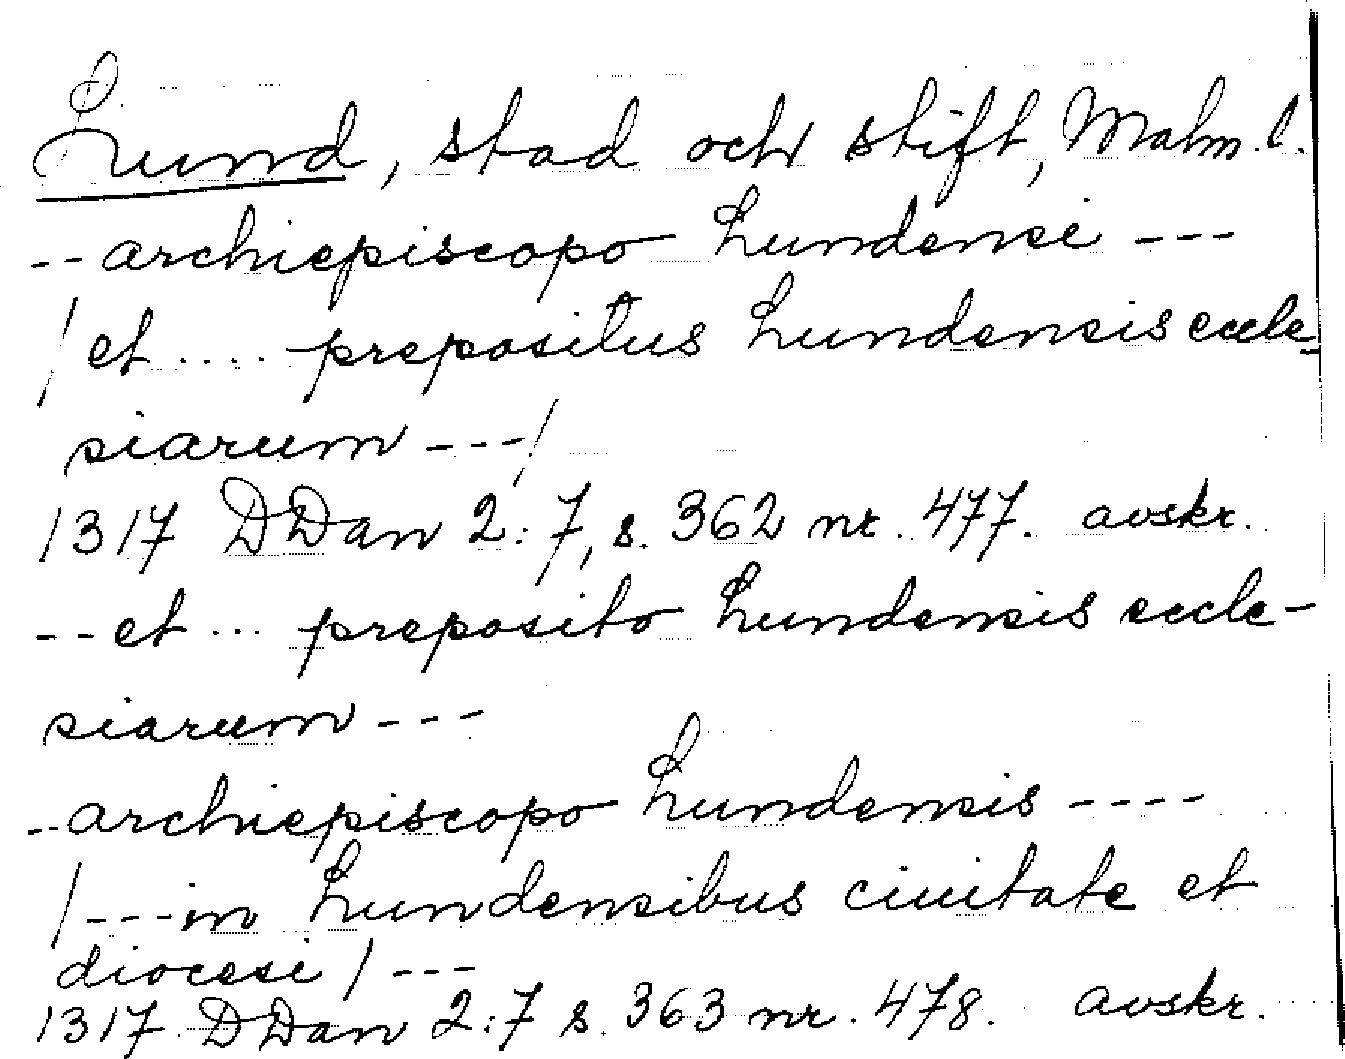 Lund, stad och stift, Malm. l.
-- archiepiscopo Lundensi ---
/ et .... prepositus Lundensis eccle-
siarum ---/
1317 DDan 2:7, s. 362 nr. 477. avskr.
-- et ... preposito Lundensis eccle-
siarum ---
-- archiepiscopo Lundensis ----
/ --- in Lundensibus ciuitate et
diocesi / ---
1317 DDan 2:7 s. 363 nr. 478. avskr.